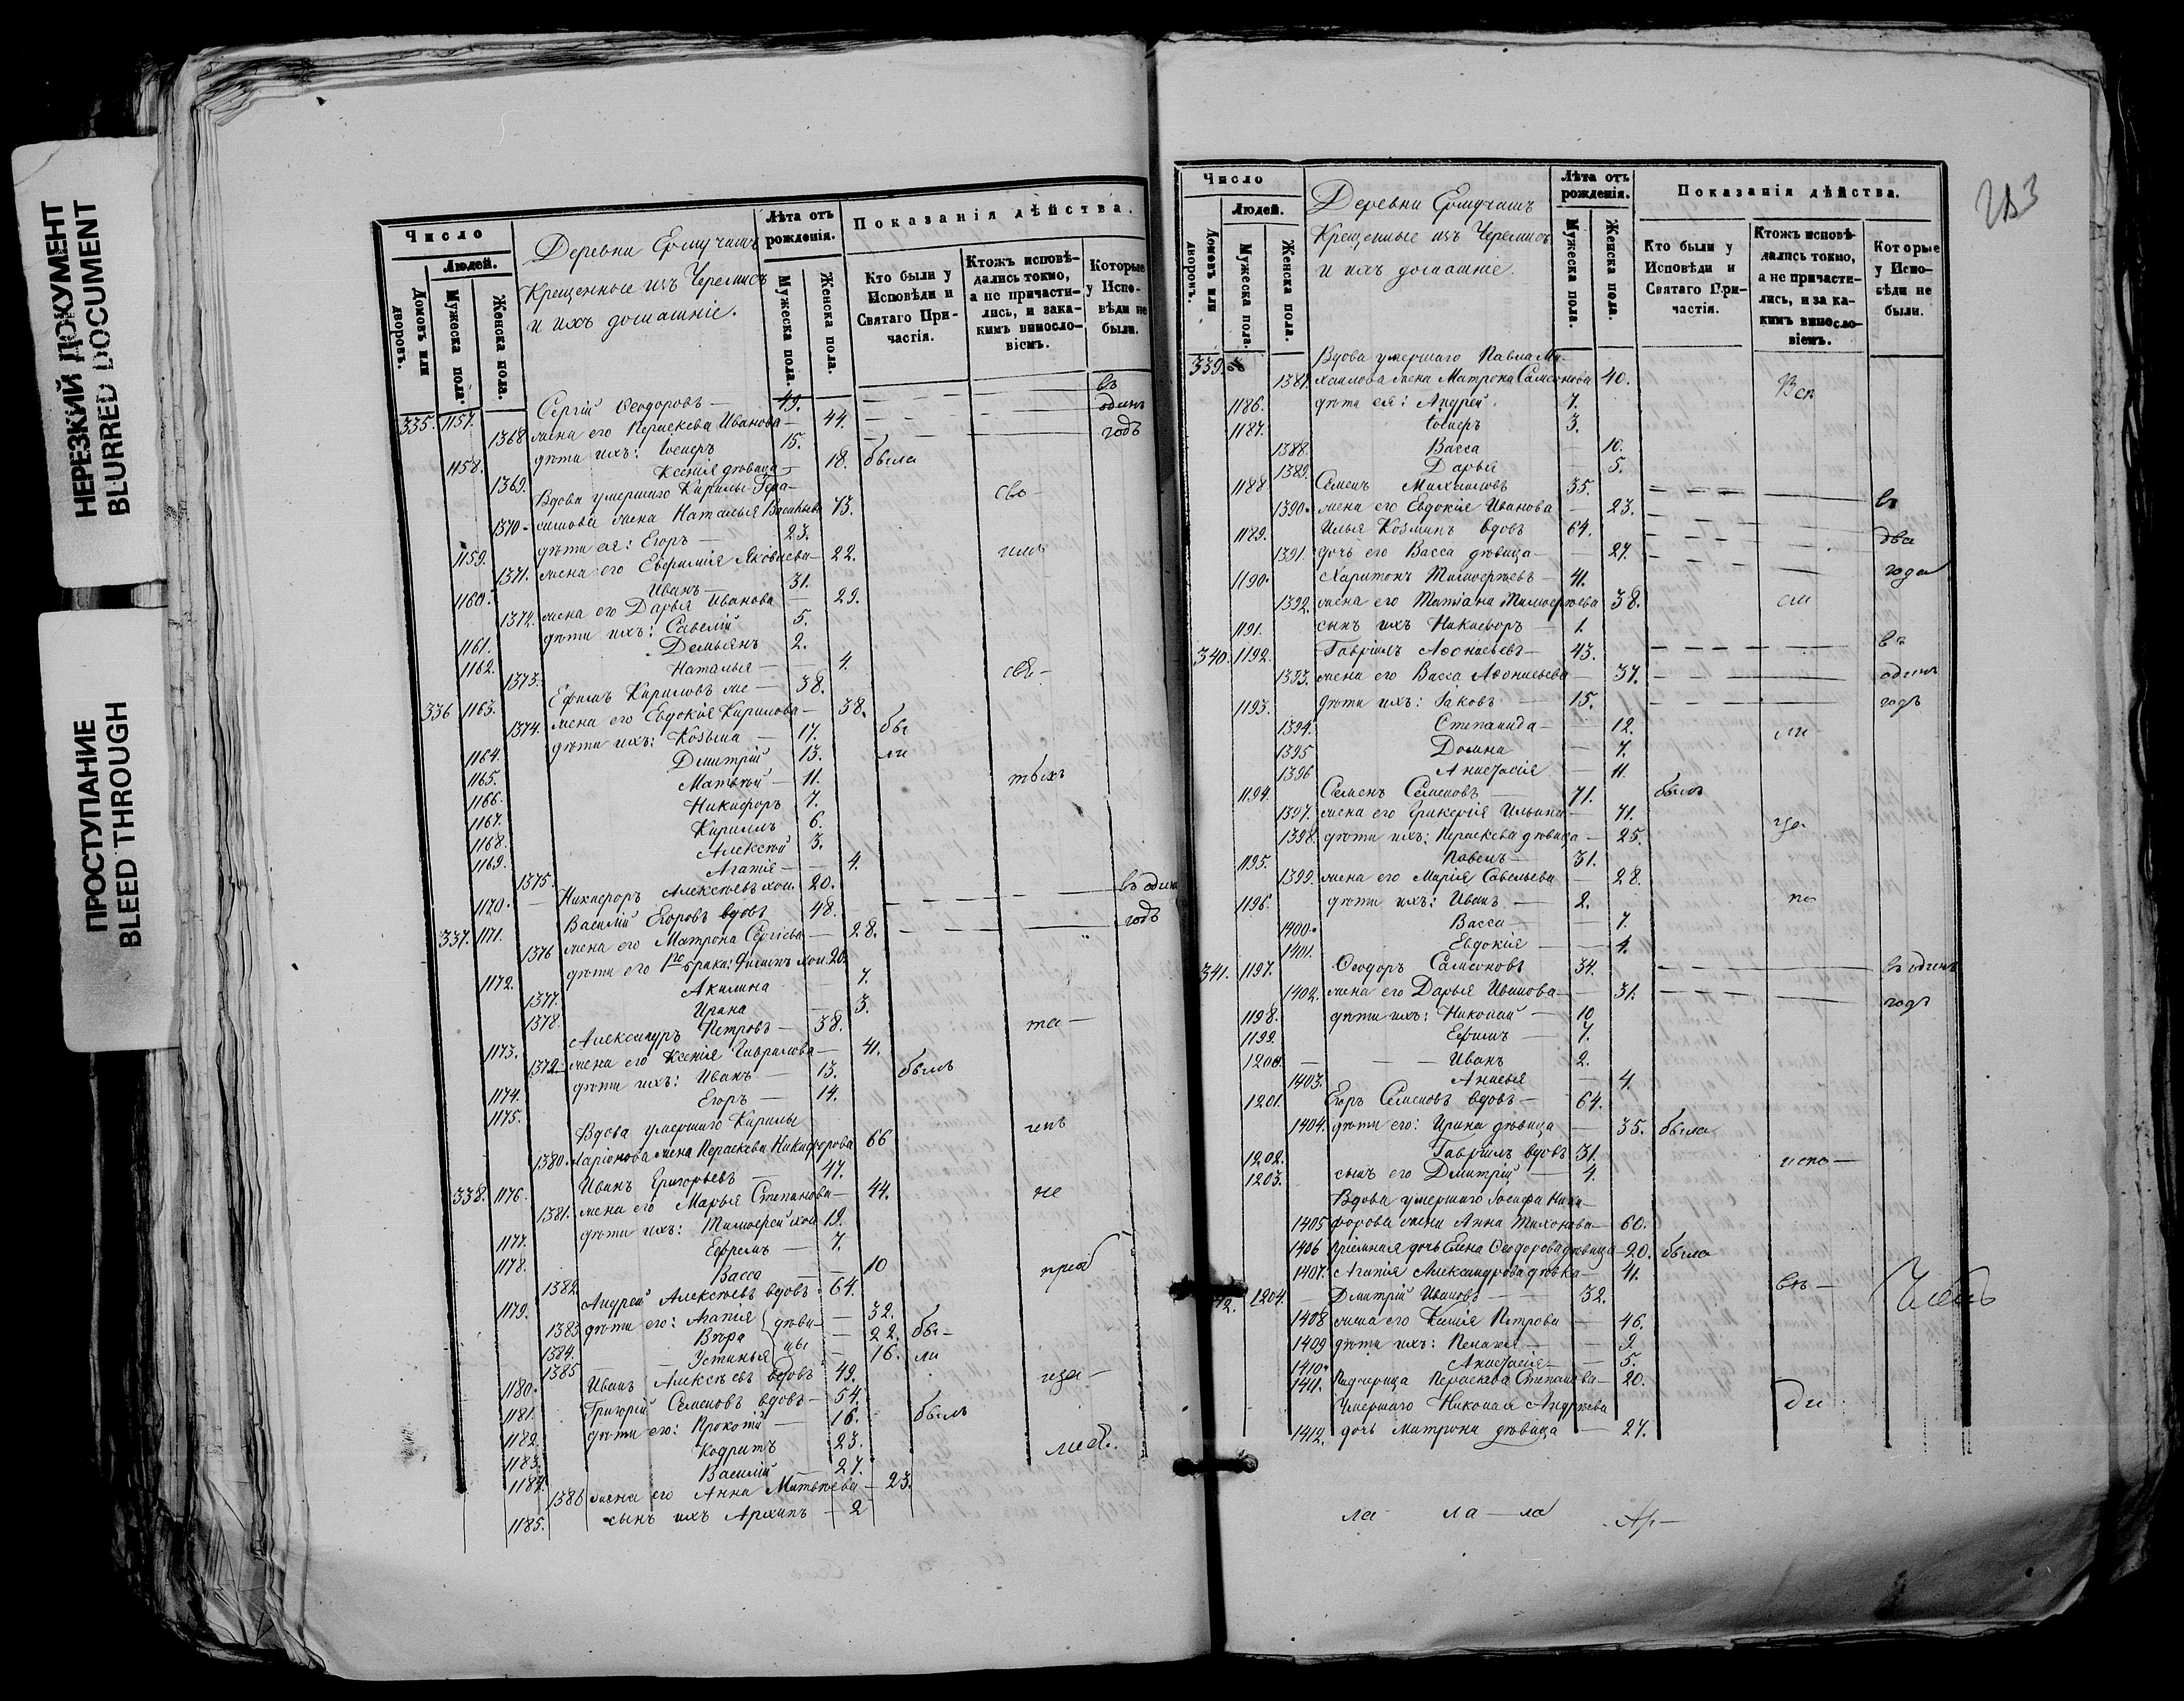 НЕРЕЗКИЙ ДОКУМЕНТ
BLURRED DOCUMENT
ПРОСТУПАНИЕ
BLEED THROUGH
Число
Людей.
Домовъ или дворовъ.
Мужеска пола.
Женска пола.
Деревни Ермучашъ
Крещенные изъ Черемисъ
и ихъ домашніе.
Лѣта отъ рожденія.
Мужеска пола.
Женска пола.
Показанія дѣйства.
Кто были у Исповѣди и Святаго Причастія.
Ктожъ исповѣдались токмо, а не причастились, и за какимъ винословіемъ.
Которые у Исповѣди не были.
335. 1157. Сергій Ѳеодоровъ — 49. въ
1368 жена его Перискева Иванова — 44. одинъ
1158. дѣти ихъ: Іосифъ 15. годъ
1369. Ксенія дѣвица — 18. была
Вдова умершаго Кирилы Гера-
1370. симова жена Наталья Васильева 73. сво-
1159. дѣти ея: Егоръ — 23.
1371. жена его Евфимія Яковлева — 22.
1160. Иванъ — 31.
1372. жена его Дарья Иванова — 29.
1161. дѣти ихъ: Савелій 5.
1162. Демьянъ 2.
1373. Наталья — 4.
336 1163. Ефимъ Кириловъ — 38. свя-
1374. жена его Евдокія Кирилова — 38.
1164. дѣти ихъ: Козьма — 17. бы
1165. Дмитрій 13. ли
1166. Матвѣй — 11. тыхъ
1167. Никифоръ 7.
1168. Кириллъ 6.
1169. Алексѣй 3.
1375. Агапія — 4.
1170. Никифоръ Алексѣевъ хол. 20.
337. 1171. Василій Егоровъ вдовъ 48. въ одинъ
1376 жена его Матрона Сергіева — 28. годъ
1172. дѣти его 1го брака: Филипъ хол. 20.
1377. Акилина — 7.
1378. Ирина — 3.
1173. Александръ Петровъ — 38. та-
1379 жена его Ксенія Гаврилова — 41.
1174. дѣти ихъ: Иванъ — 13. былъ
1175. Егоръ — 14.
Вдова умершаго Кирилы
1380. Ларіонова жена Перискева Никифорова 66
338. 1176. Иванъ Григорьевъ — 47.
1381. жена его Марья Степанова — 44. не
1177. дѣти ихъ: Тимофей хол 19.
1178. Ефремъ — 7.
1382 Васса — 10
1179. Андрей Алексѣевъ вдовъ 64.
1383 дѣти его: Агапія дѣви- 32.
1384. Вѣра цы 22. бы-
1385 Устинья 16. ли
1180. Иванъ Алексѣевъ вдовъ 49.
1181. Григорій Семеновъ вдовъ — 54.
1182. дѣти его: Прокопій — 16. былъ
1183. Кодратъ 23.
1184. Василій 27.
1386 жена его Анна Матвѣева — 23.
1185. сынъ ихъ Архипъ — 2
Число
Людей.
Домовъ или дворовъ.
Мужеска пола.
Женска пола.
Деревни Ермучашъ
Крещенные изъ Черемисъ
и ихъ домашніе.
Лѣта отъ рожденія.
Мужеска пола.
Женска пола.
Показанія дѣйства.
Кто были у Исповѣди и Святаго Причастія.
Ктожъ исповѣдались токмо, а не причастились, и за какимъ винословіемъ.
Которые у Исповѣди не были.
339. Вдова умершаго Павла Ми-
1387. хаилова жена Матрона Самсонова 40.
1186. дѣти ея: Андрей 7.
1187. Іосифъ 3.
1388. Васса 10.
1389. Дарья 5.
1188 Семенъ Михаиловъ 35.
1390. жена его Евдокія Иванова — 23. въ
1189. Илья Козминъ вдовъ 64.
1391. дочь его Васса дѣвица — 27. два
1190. Харитонъ Тимофеевъ — 41. года
1392. жена его Татіана Тимофеева 38.
1191. сынъ ихъ Никифоръ — 1.
340. 1192. Гавріилъ Аѳонасьевъ — 43. въ
1393. жена его Васса Аѳонасьева — 37. одинъ
1193. дѣти ихъ: Іаковъ — 15. годъ
1394. Степанида — 12.
1395 Домна — 7.
1396 Анастасія — 11.
1194. Семенъ Семеновъ — 71. былъ
1397. жена его Гликерія Ильина — 71.
1398. дѣти ихъ: Перискева дѣвица — 25.
1195. Павелъ — 31.
1399. жена его Марія Савельева — 28.
1196. дѣти ихъ: Иванъ — 2. по
1400. Васса — 7.
1401. Евдокія — 4.
341. 1197. Ѳеодоръ Самсоновъ 34. въ одинъ
1402. жена его Дарья Иванова — 31. годъ
1198. дѣти ихъ: Николай — 10
1199. Ефимъ — 7.
1200. Иванъ 2.
1403. Анисья — 4.
1201. Егоръ Семеновъ вдовъ — 64.
1404. дѣти его: Ирина дѣвица — 35. была
1202. Гавріилъ вдовъ 31.
1203. сынъ его Дмитрій — 4. испо-
Вдова умершаго Іосифа Ники-
1405 форова жена Анна Тихонова — 60.
1406 пріемная дочь Елена Ѳеодорова дѣвица — 20. была
1407. Агапія Александрова дѣвка — 41.
1204. Дмитрій Ивановъ — 32. вѣ-
1408 жена его Ксенія Петрова — 46.
1409 дѣти ихъ: Пелагея — 9.
1410. Анастасія — 5.
1411. Падчерица Перискева Степанова — 20.
Умершаго Николая Андреева
1412. дочь Матрона дѣвица — 27. ди
ла- ла- ла